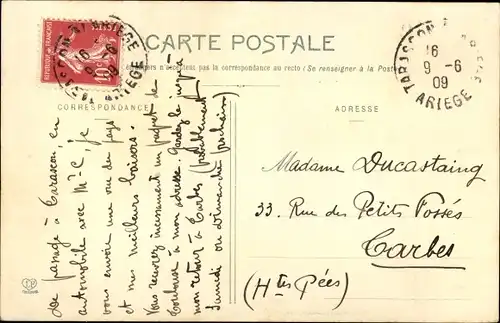 CARTE POSTALE
n'acceptent pas la correspondance au recto (Se renseigner à la Poste)
CORRESPONDANCE
ADRESSE
TARASCON
16
9-6
09
ARIEGE
16
09
ARIEGE
10
De passage à Tarascon, en
automobile avec Mr C, je
vous envoie une vue du pays
et mes meilleurs baisers.
Vous recevrez incessamment un paquet de
à mon adresse. Gardez le jusqu'à
mon retour à Tarbes (probablement
Samedi ou Dimanche prochain)
Madame Ducastaing
33. Rue des Petits Fossés
Tarbes
(Htes Pées)